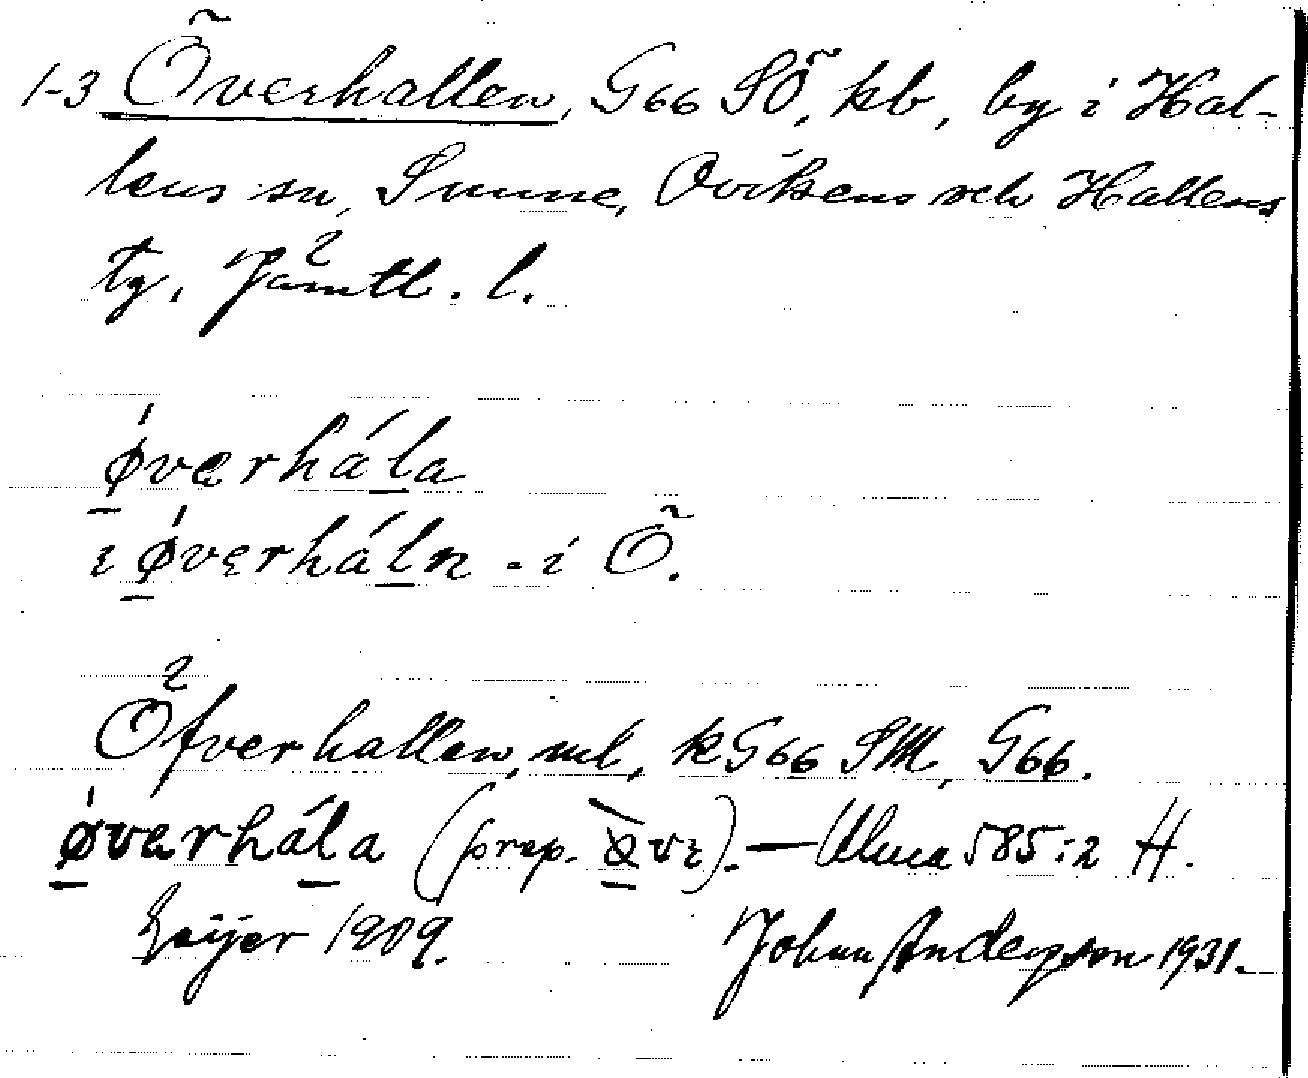 1-3 Överhallen, G66 SÖ, kb, by i Hal-
lens sn, Sunne, Ovikens och Hallens
tg, Jämtl. l.
ǿvęrhála
ı ǿvęrháln - i Ö.
Öfverhallen, ml, kG66 SM, G66.
ǿvęrhála (prep. ø̀vę). — Ulma 585:2 H.
Geijer 1909. Johan Anderson 1931.